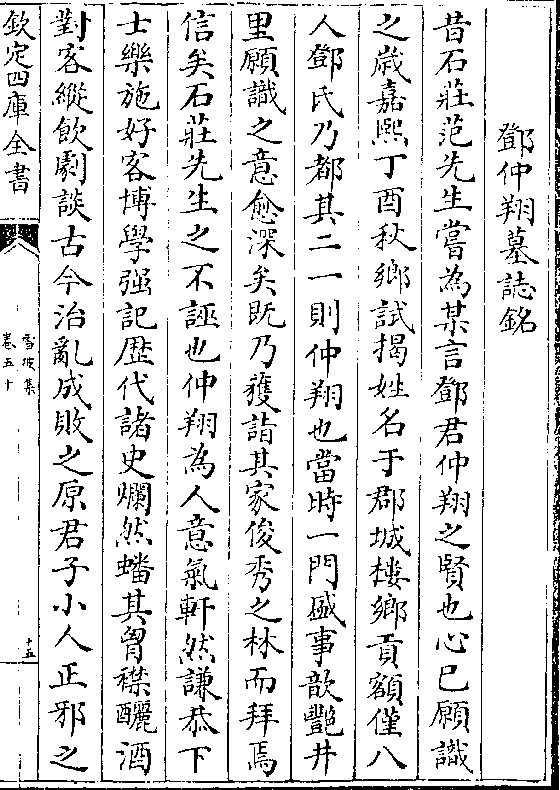 鄧仲翔墓誌銘
昔石莊范先生嘗為某言鄧君仲翔之賢也心已願識
之歲嘉熙丁酉秋鄉試揭姓名于郡城樓鄉貢額僅八
人鄧氏乃都其二一則仲翔也當時一門盛事歆艷井
里願識之意愈深矣既乃獲詣其家俊秀之林而拜焉
信矣石莊先生之不誣也仲翔為人意氣軒然謙恭下
士樂施好客博學强記歴代諸史爛然蟠其胷襟釃酒
對客縱飲劇談古今治亂成敗之原君子小人正邪之
欽定四庫全書
雪坡集
卷五十
十五